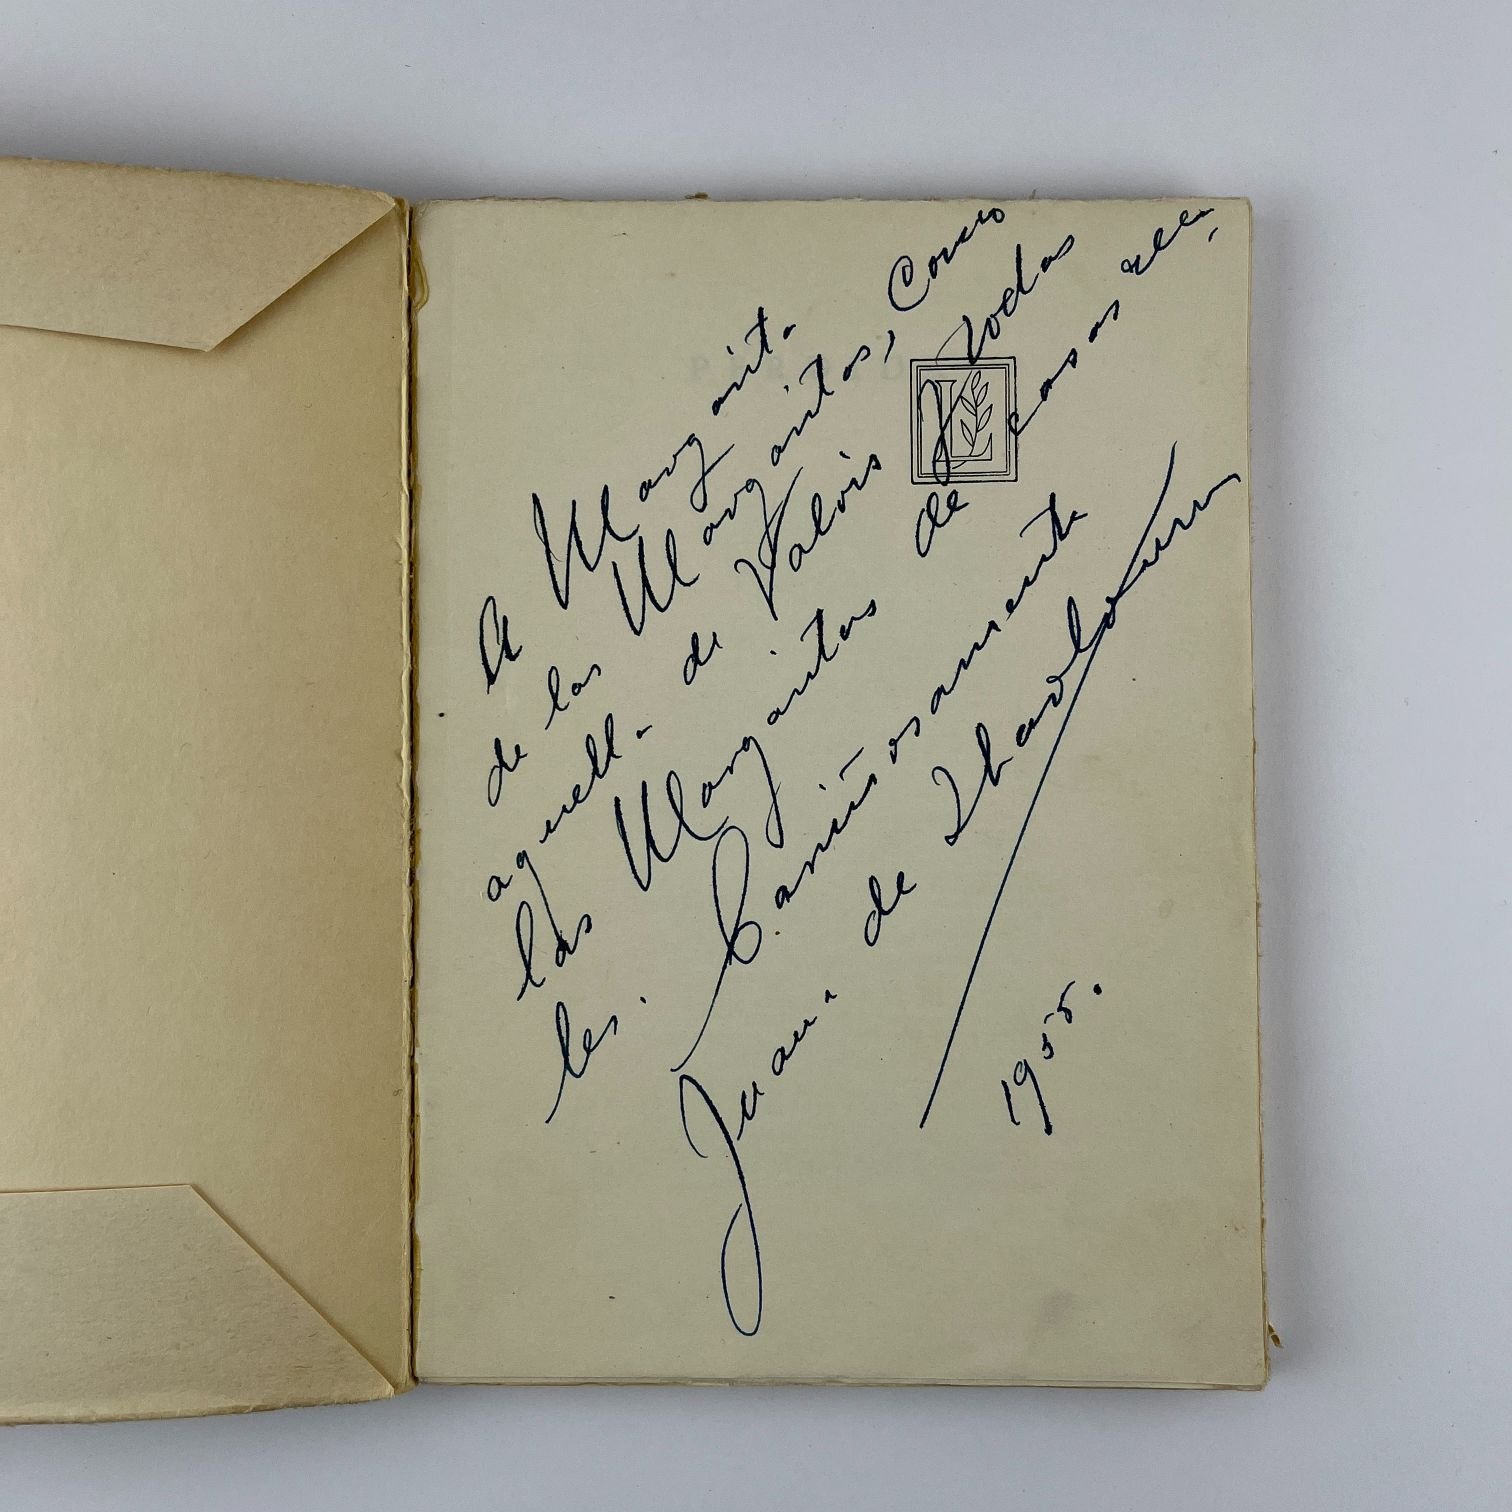 A Margarita
de las Margaritas, como
aquella de Valois y todas
las Margaritas de casas rea,
les.
Cariñosamente
Juana de Ibarbourou
1955.
L